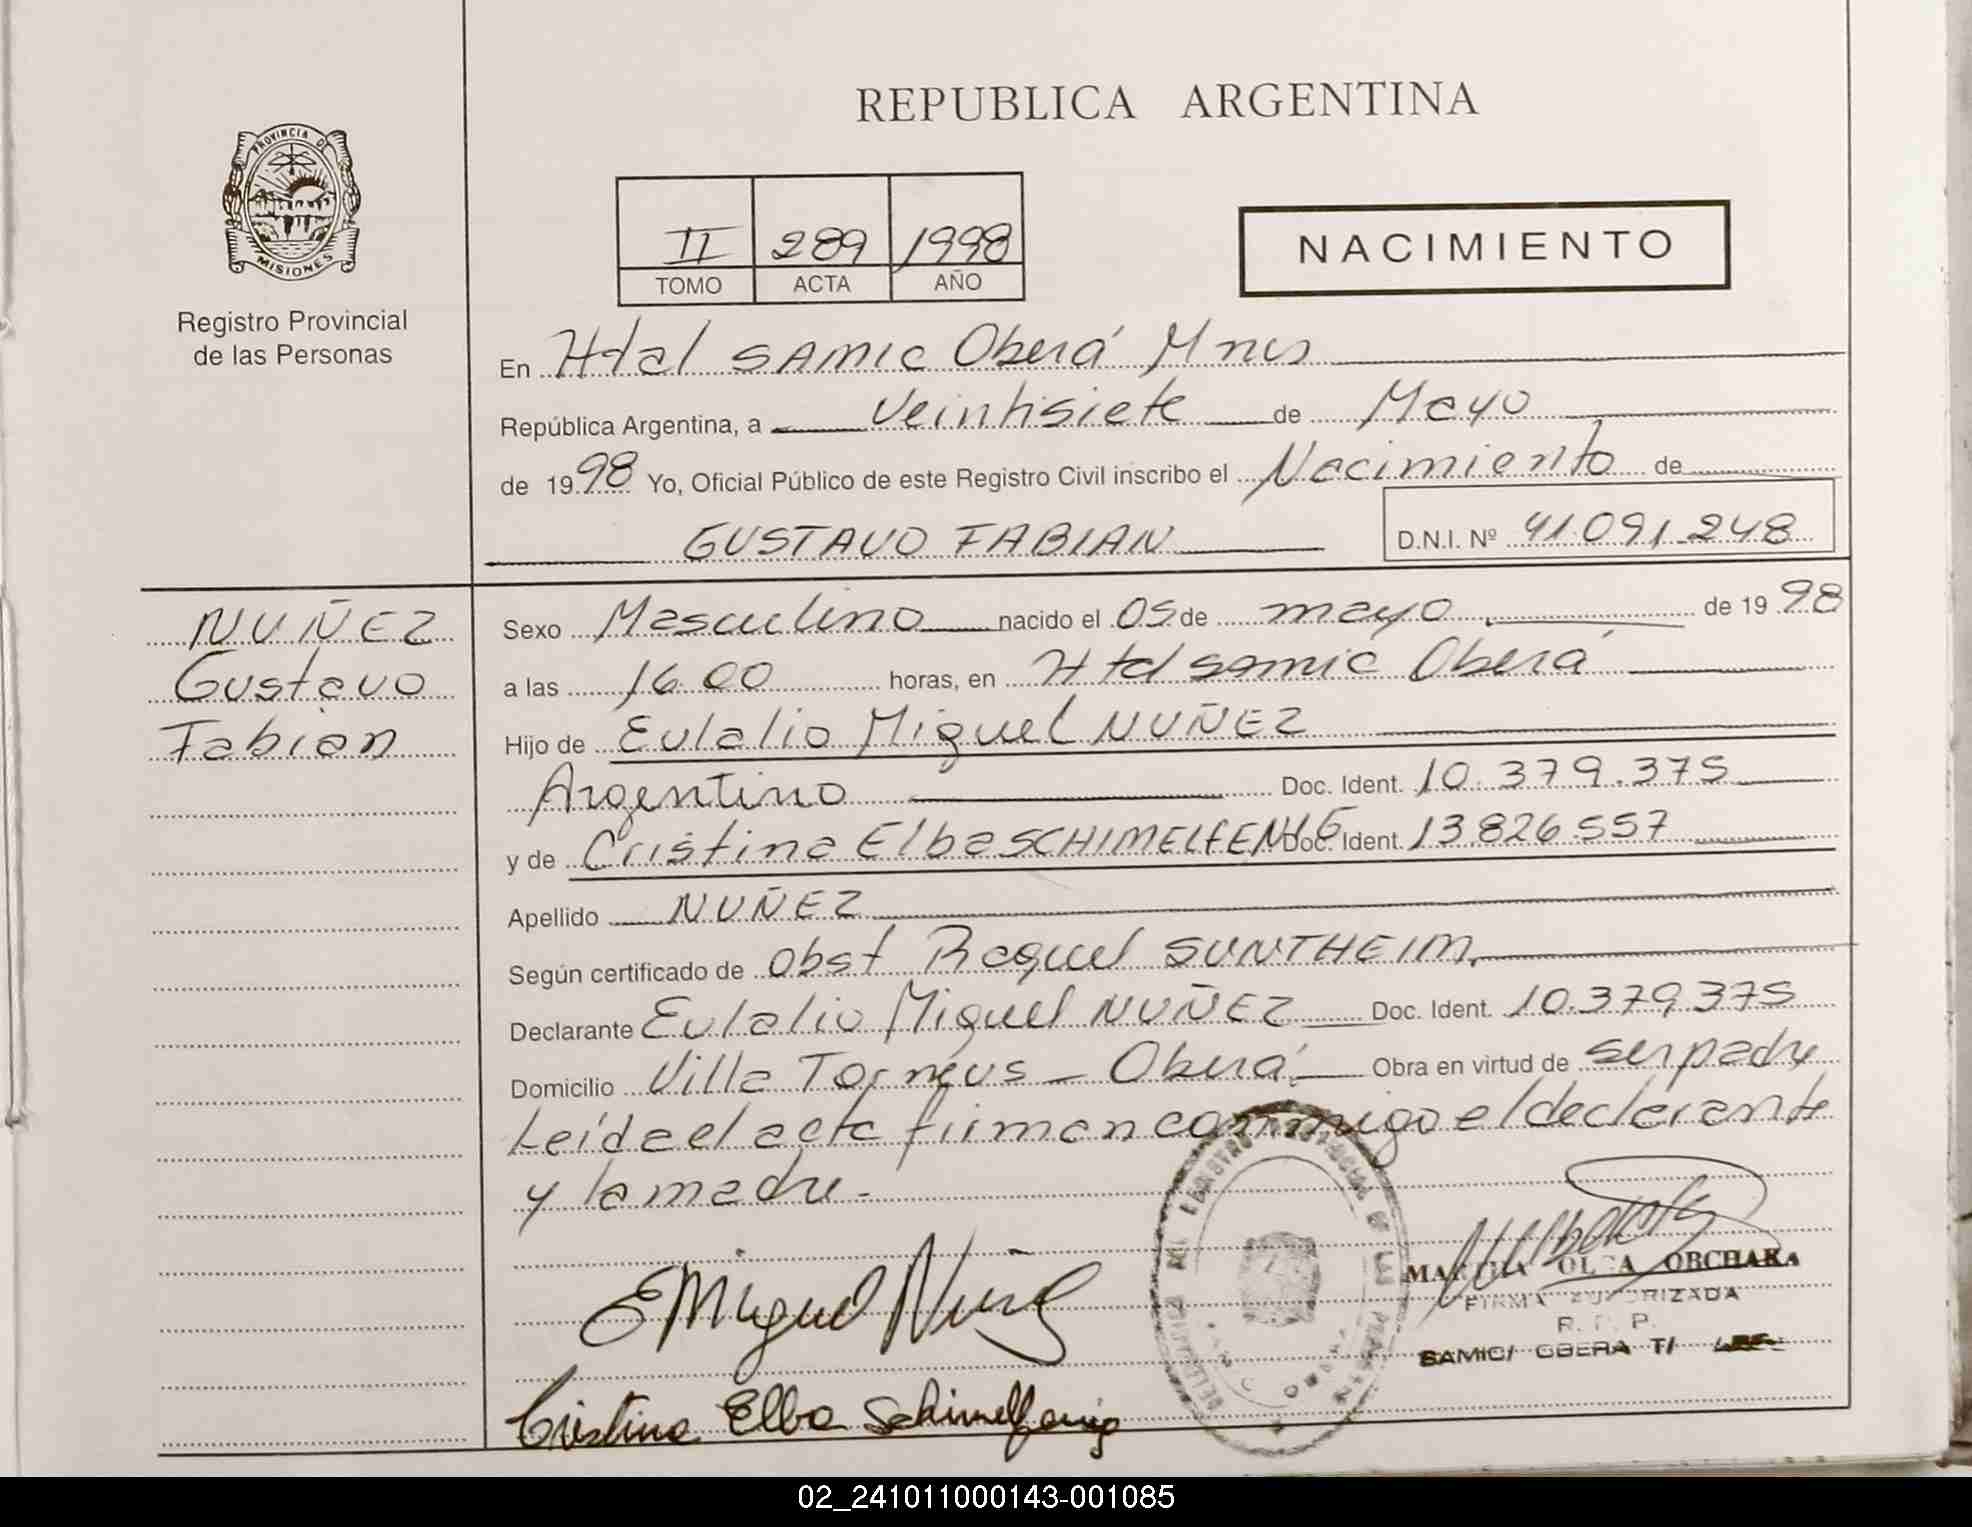 REPUBLICA ARGENTINA
PROVINCIA DE
MISIONES
Registro Provincial
de las Personas
II 289 1998
TOMO ACTA AÑO
NACIMIENTO
En Htal SAMIC Oberá Mnes
República Argentina, a Veintisiete de Mayo
de 1998 Yo, Oficial Público de este Registro Civil inscribo el Nacimiento de
GUSTAVO FABIAN D.N.I. Nº 41.091.248
NUÑEZ
Gustavo
Fabian
Sexo Masculino nacido el 05 de mayo de 1998
a las 16.00 horas, en Htal samic Oberá
Hijo de Eulalio Miguel NUÑEZ
Argentino Doc. Ident. 10.379.375
y de Cristina Elba SCHIMELFENIG Doc. Ident. 13.826.557
Apellido NUÑEZ
Según certificado de Obst Raquel SUNTHEIM
Declarante Eulalio Miguel NUÑEZ Doc. Ident. 10.379.375
Domicilio Villa Torneus - Oberá Obra en virtud de ser padre
Leída el acta firman conmigo el declarante
y la madre.-
E Miguel Nuñez
MARTHA OLGA OBCHAKA
FIRMA AUTORIZADA
R. P. P.
SAMIC/ OBERA T/
Cristina Elba Schimelfenig
02_241011000143-001085